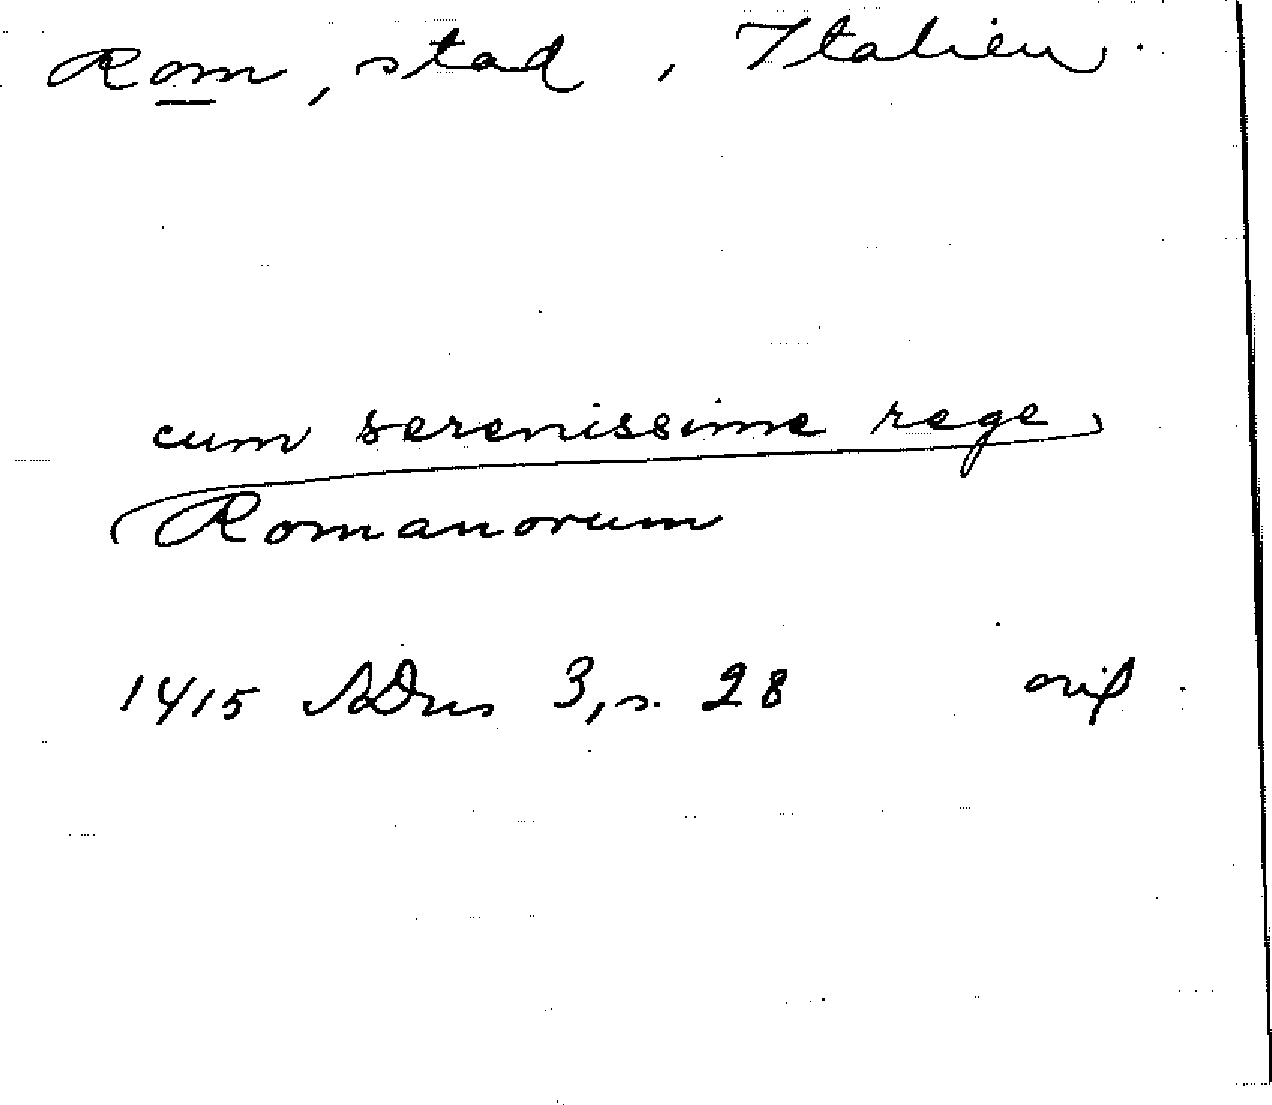 Rom, stad, Italien.
cum serenissime rege
Romanorum
1415 SDns 3, s. 28 orig.